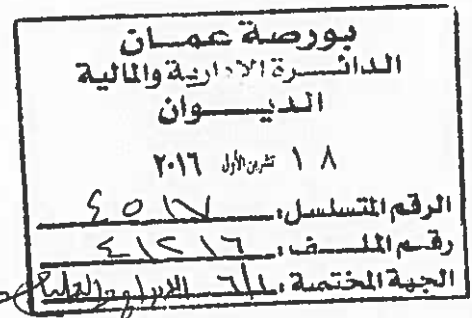 بورصة عمان
الدائرة الإدارية والمالية
الديوان
١٨ تشرين الأول ٢٠١٦
الرقم المتسلسل: ٤٥١٧
رقم الملف: ٤١٢١٦
الجهة المختصة: